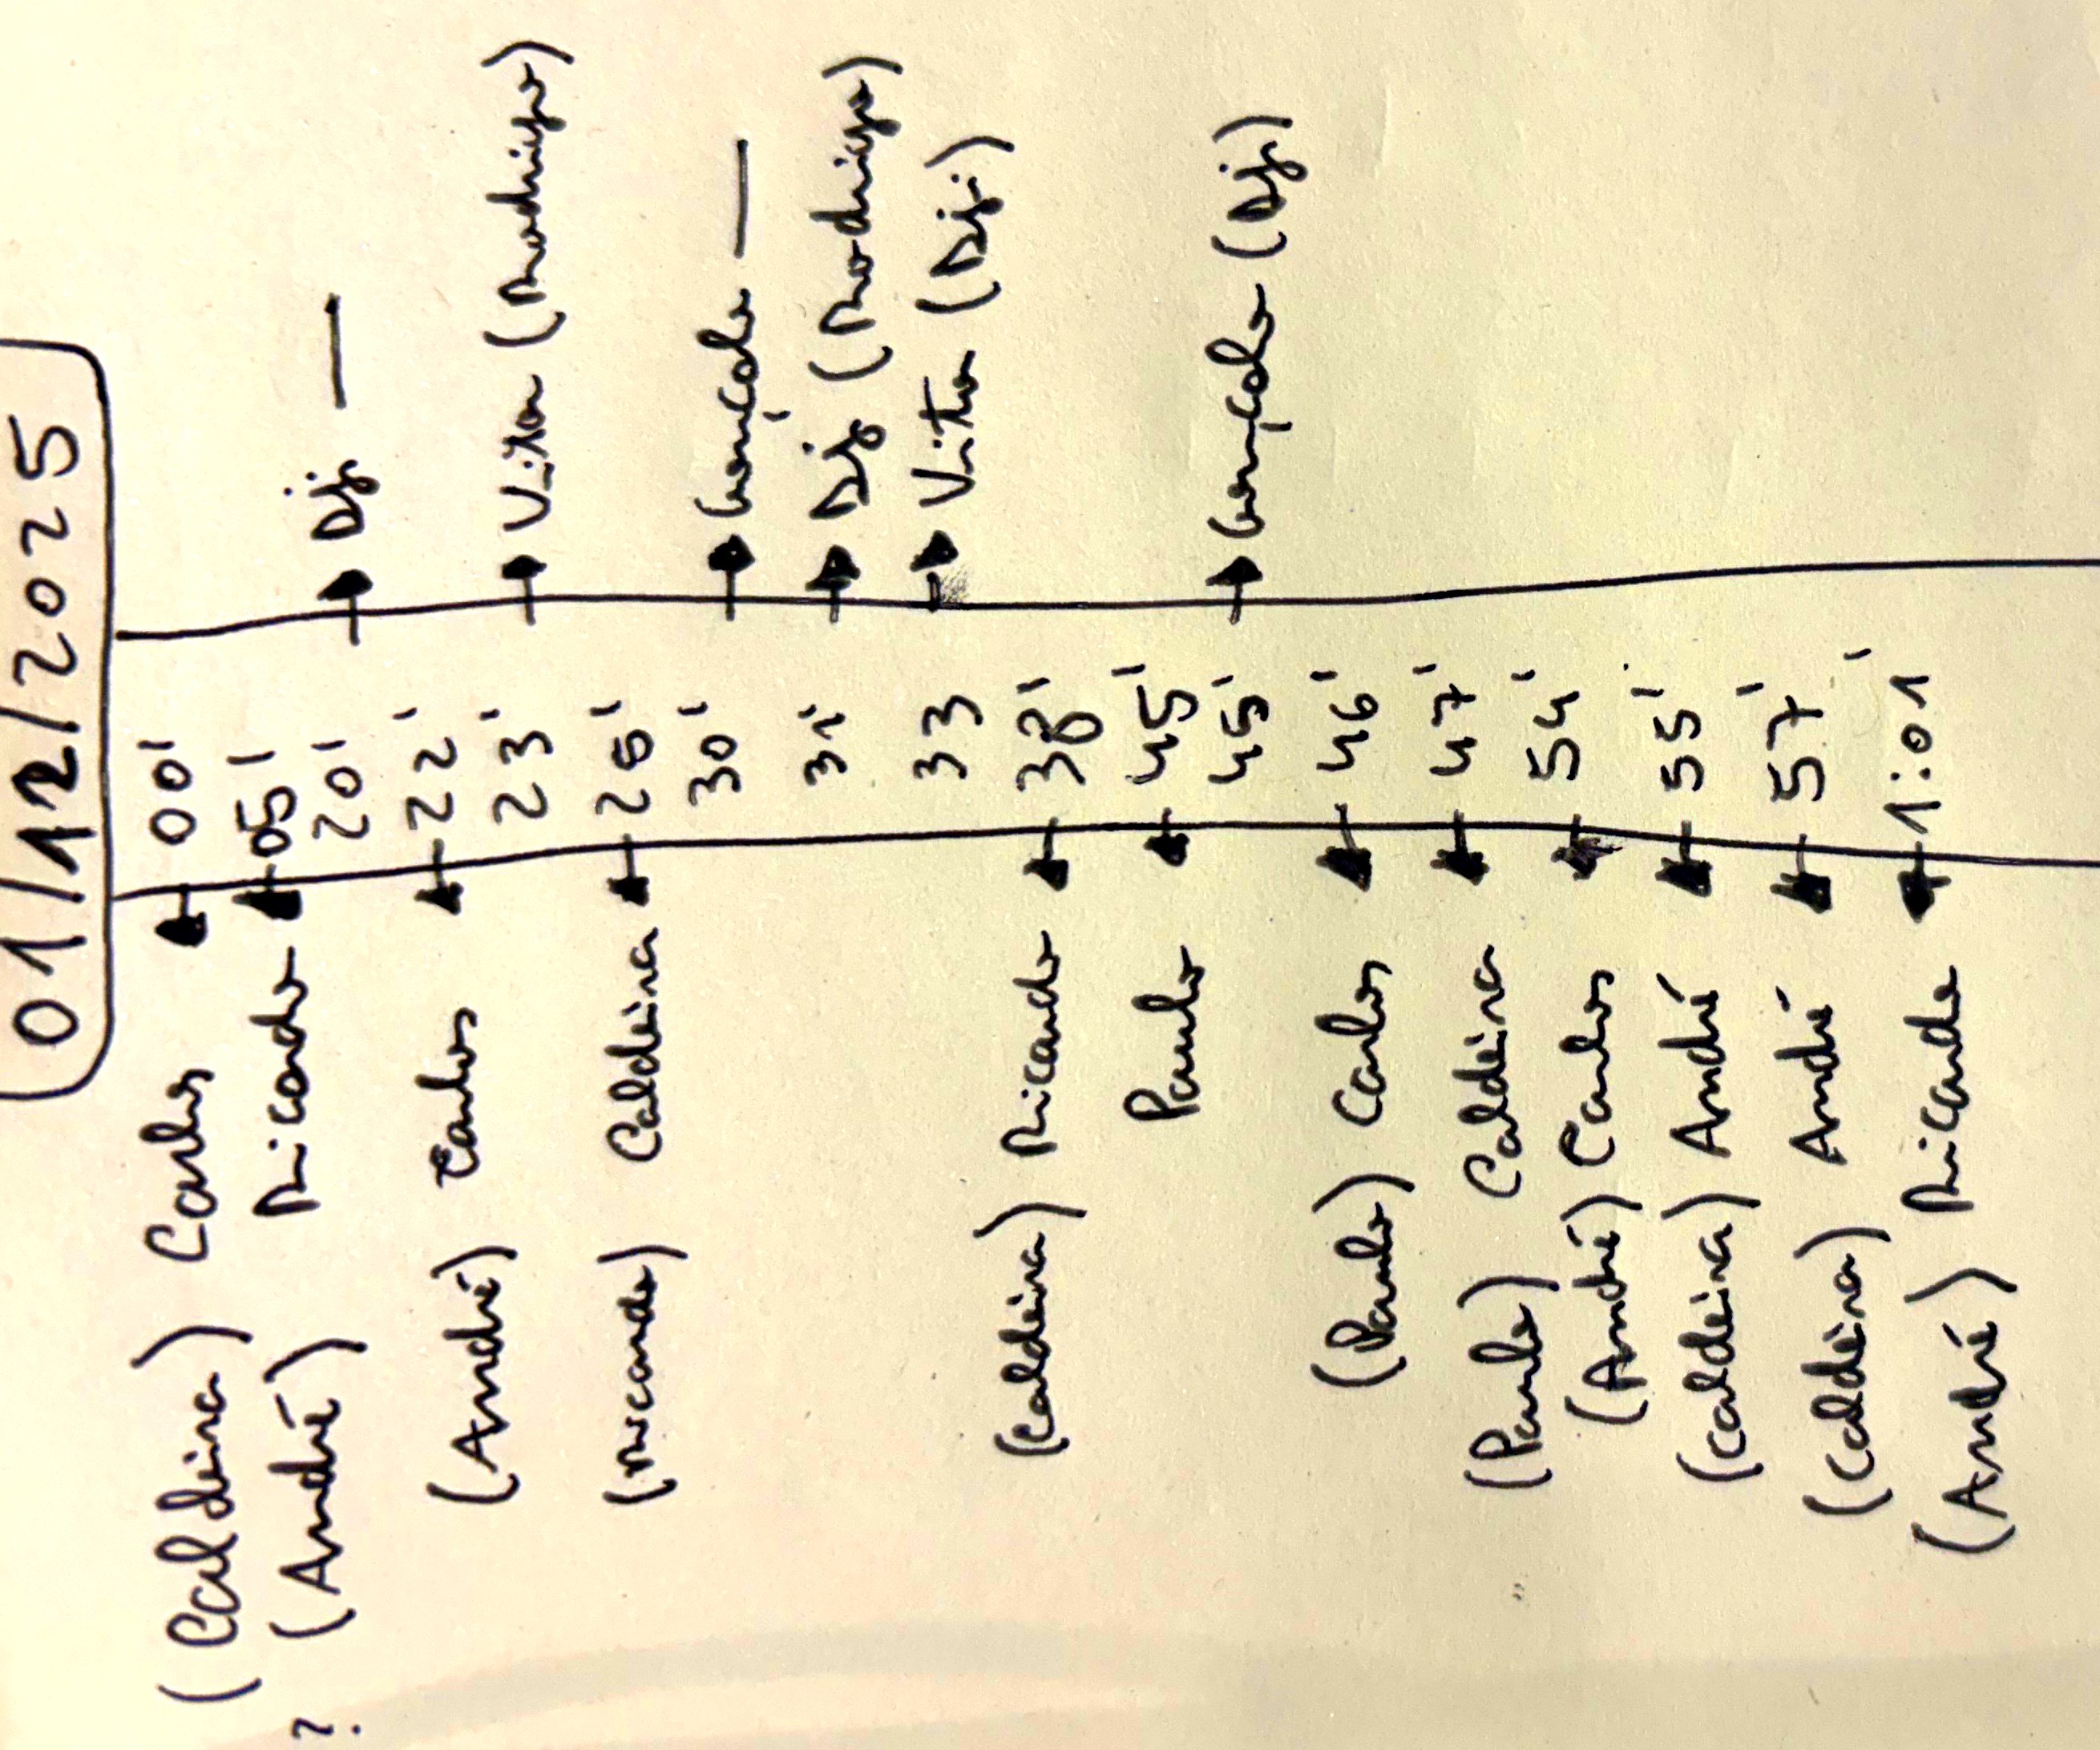 01/12/2025
(Caldeira) Carlos 00'
? (André) Ricardo 05'
20' Dji —
(André) Carlos 22'
23' Vitor (Rodrigo)
(Ricardo) Caldeira 28'
30' Gonçalo —
31' Dji (Rodrigo)
33 Vitor (Dji)
(Caldeira) Ricardo 38'
Paulo 45'
45' Gonçalo (Dji)
(Paulo) Carlos 46'
(Paulo) Caldeira 47'
(André) Carlos 54'
(Caldeira) André 55'
(Caldeira) André 57'
(André) Ricardo 1:01'